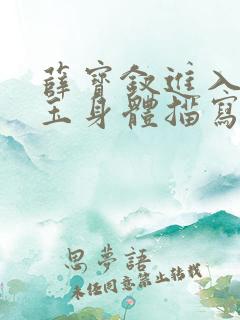 薛寶釵進入
玉身體描寫
思夢語
未經同意禁止轉載